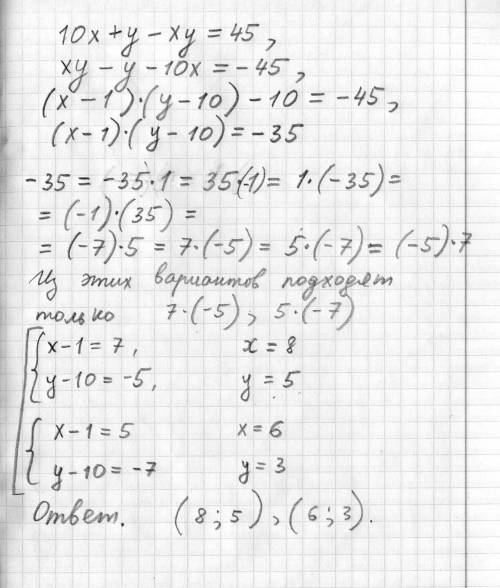 10x + y - xy = 45,
xy - y - 10x = -45,
(x - 1)·(y - 10) - 10 = -45,
(x-1)·(y-10) = -35
-35 = -35·1 = 35·(-1) = 1·(-35) =
= (-1)·(35) =
= (-7)·5 = 7·(-5) = 5·(-7) = (-5)·7
Из этих вариантов подходят
только 7·(-5), 5·(-7)
x-1 = 7, x = 8
y-10 = -5, y = 5
x-1 = 5 x = 6
y-10 = -7 y = 3
Ответ. (8; 5), (6; 3).